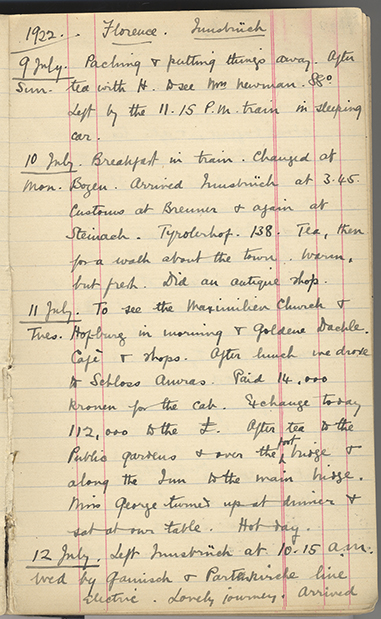 1922. Florence. Innsbrück
9 July. Packing & putting things away. After
Sun. tea with H. to see Mrs Newman. 88°
Left by the 11.15 P.M. train in sleeping
car.
10 July. Breakfast in train. Changed at
Mon. Bozen. Arrived Innsbrück at 3.45.
Customs at Brenner & again at
Steinach. Tyrolerhof. 138. Tea, then
for a walk about the town. Warm,
but fresh. Did an antique shop.
11 July. To see the Maximilien Church &
Tues. Hofburg in morning & Goldene Dachle.
Café & shops. After lunch we drove
to Schloss Amras. Paid 14,000
kronen for the cab. Exchange today
112,000 to the £. After tea to the
Public gardens & over the foot bridge &
along the Inn to the main bridge.
Miss George turned up at dinner &
sat at our table. Hot day.
12 July. Left Innsbrück at 10.15 a.m.
Wed by Garmisch & Partenkirche line
electric. Lovely journey. Arrived